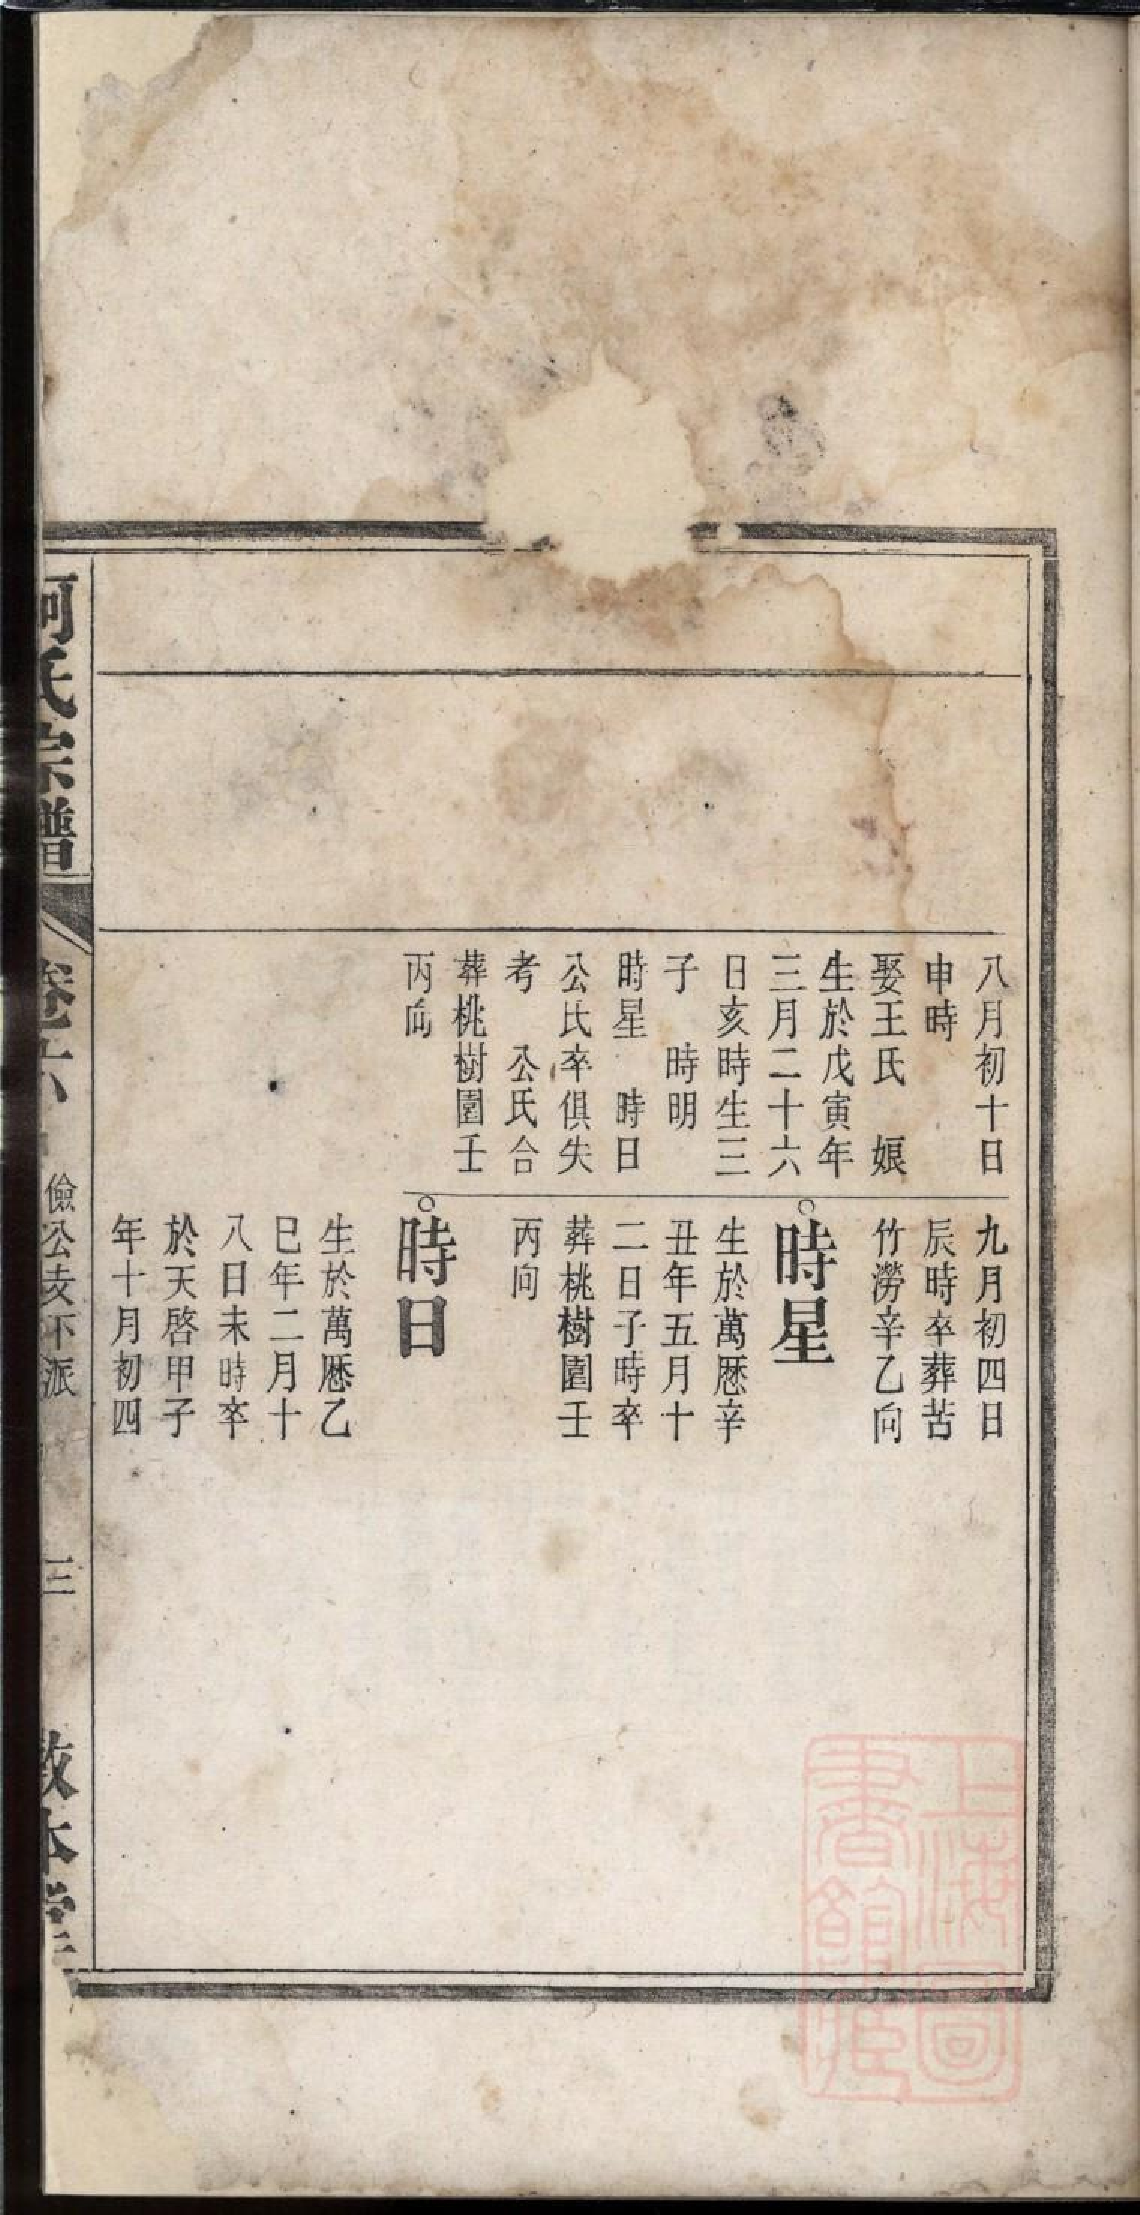 八月初十日
申時
娶王氏　娘
生於戊寅年
三月二十六
日亥時生三
子　時明
時星　時日
公氏卒俱失
考　公氏合
葬桃樹園壬
丙向
九月初四日
辰時卒葬苦
竹澇辛乙向
○時星
生於萬歷辛
丑年五月十
二日子時卒
葬桃樹園壬
丙向
○時日
生於萬歷乙
巳年二月十
八日未時卒
於天啓甲子
年十月初四
氏宗譜
卷十六
儉公支不派
三
敦本堂
上海圖
書館藏